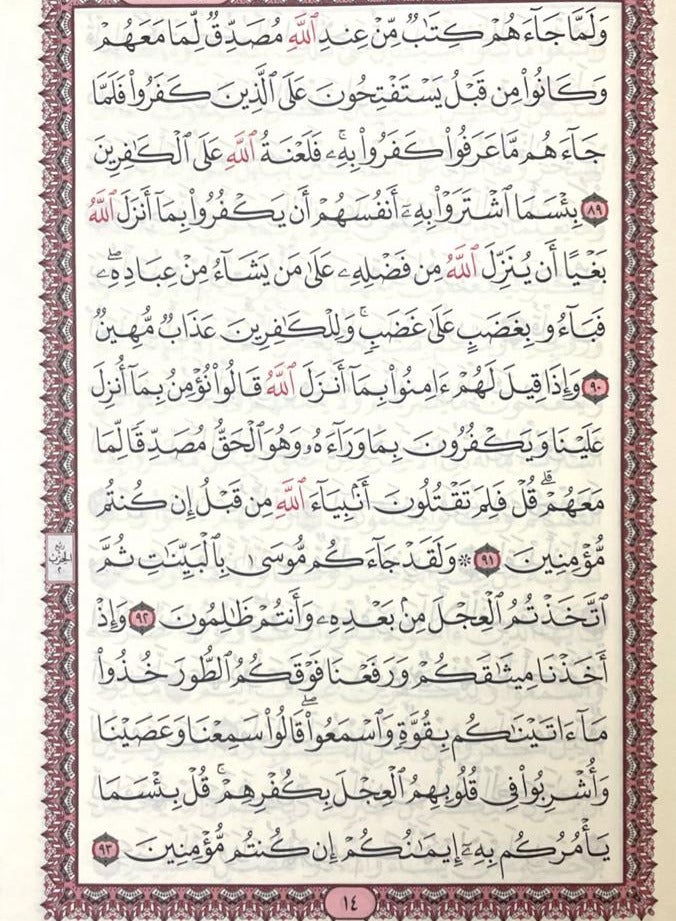 وَلَمَّا جَآءَهُمْ كِتَٰبٌ مِّنْ عِندِ ٱللَّهِ مُصَدِّقٌ لِّمَا مَعَهُمْ
وَكَانُوا۟ مِن قَبْلُ يَسْتَفْتِحُونَ عَلَى ٱلَّذِينَ كَفَرُوا۟ فَلَمَّا
جَآءَهُم مَّا عَرَفُوا۟ كَفَرُوا۟ بِهِۦ ۚ فَلَعْنَةُ ٱللَّهِ عَلَى ٱلْكَٰفِرِينَ
٨٩ بِئْسَمَا ٱشْتَرَوْا۟ بِهِۦٓ أَنفُسَهُمْ أَن يَكْفُرُوا۟ بِمَآ أَنزَلَ ٱللَّهُ
بَغْيًا أَن يُنَزِّلَ ٱللَّهُ مِن فَضْلِهِۦ عَلَىٰ مَن يَشَآءُ مِنْ عِبَادِهِۦ ۖ
فَبَآءُو بِغَضَبٍ عَلَىٰ غَضَبٍ ۚ وَلِلْكَٰفِرِينَ عَذَابٌ مُّهِينٌ
٩٠ وَإِذَا قِيلَ لَهُمْ ءَامِنُوا۟ بِمَآ أَنزَلَ ٱللَّهُ قَالُوا۟ نُؤْمِنُ بِمَآ أُنزِلَ
عَلَيْنَا وَيَكْفُرُونَ بِمَا وَرَآءَهُۥ وَهُوَ ٱلْحَقُّ مُصَدِّقًا لِّمَا
مَعَهُمْ ۗ قُلْ فَلِمَ تَقْتُلُونَ أَنۢبِيَآءَ ٱللَّهِ مِن قَبْلُ إِن كُنتُم
مُّؤْمِنِينَ ٩١ ۞ وَلَقَدْ جَآءَكُم مُّوسَىٰ بِٱلْبَيِّنَٰتِ ثُمَّ
ٱتَّخَذْتُمُ ٱلْعِجْلَ مِنۢ بَعْدِهِۦ وَأَنتُمْ ظَٰلِمُونَ ٩٢ وَإِذْ
أَخَذْنَا مِيثَٰقَكُمْ وَرَفَعْنَا فَوْقَكُمُ ٱلطُّورَ خُذُوا۟
مَآ ءَاتَيْنَٰكُم بِقُوَّةٍ وَٱسْمَعُوا۟ ۖ قَالُوا۟ سَمِعْنَا وَعَصَيْنَا
وَأُشْرِبُوا۟ فِى قُلُوبِهِمُ ٱلْعِجْلَ بِكُفْرِهِمْ ۚ قُلْ بِئْسَمَا
يَأْمُرُكُم بِهِۦٓ إِيمَٰنُكُمْ إِن كُنتُم مُّؤْمِنِينَ ٩٣
ربع
الحزب
٢
١٤